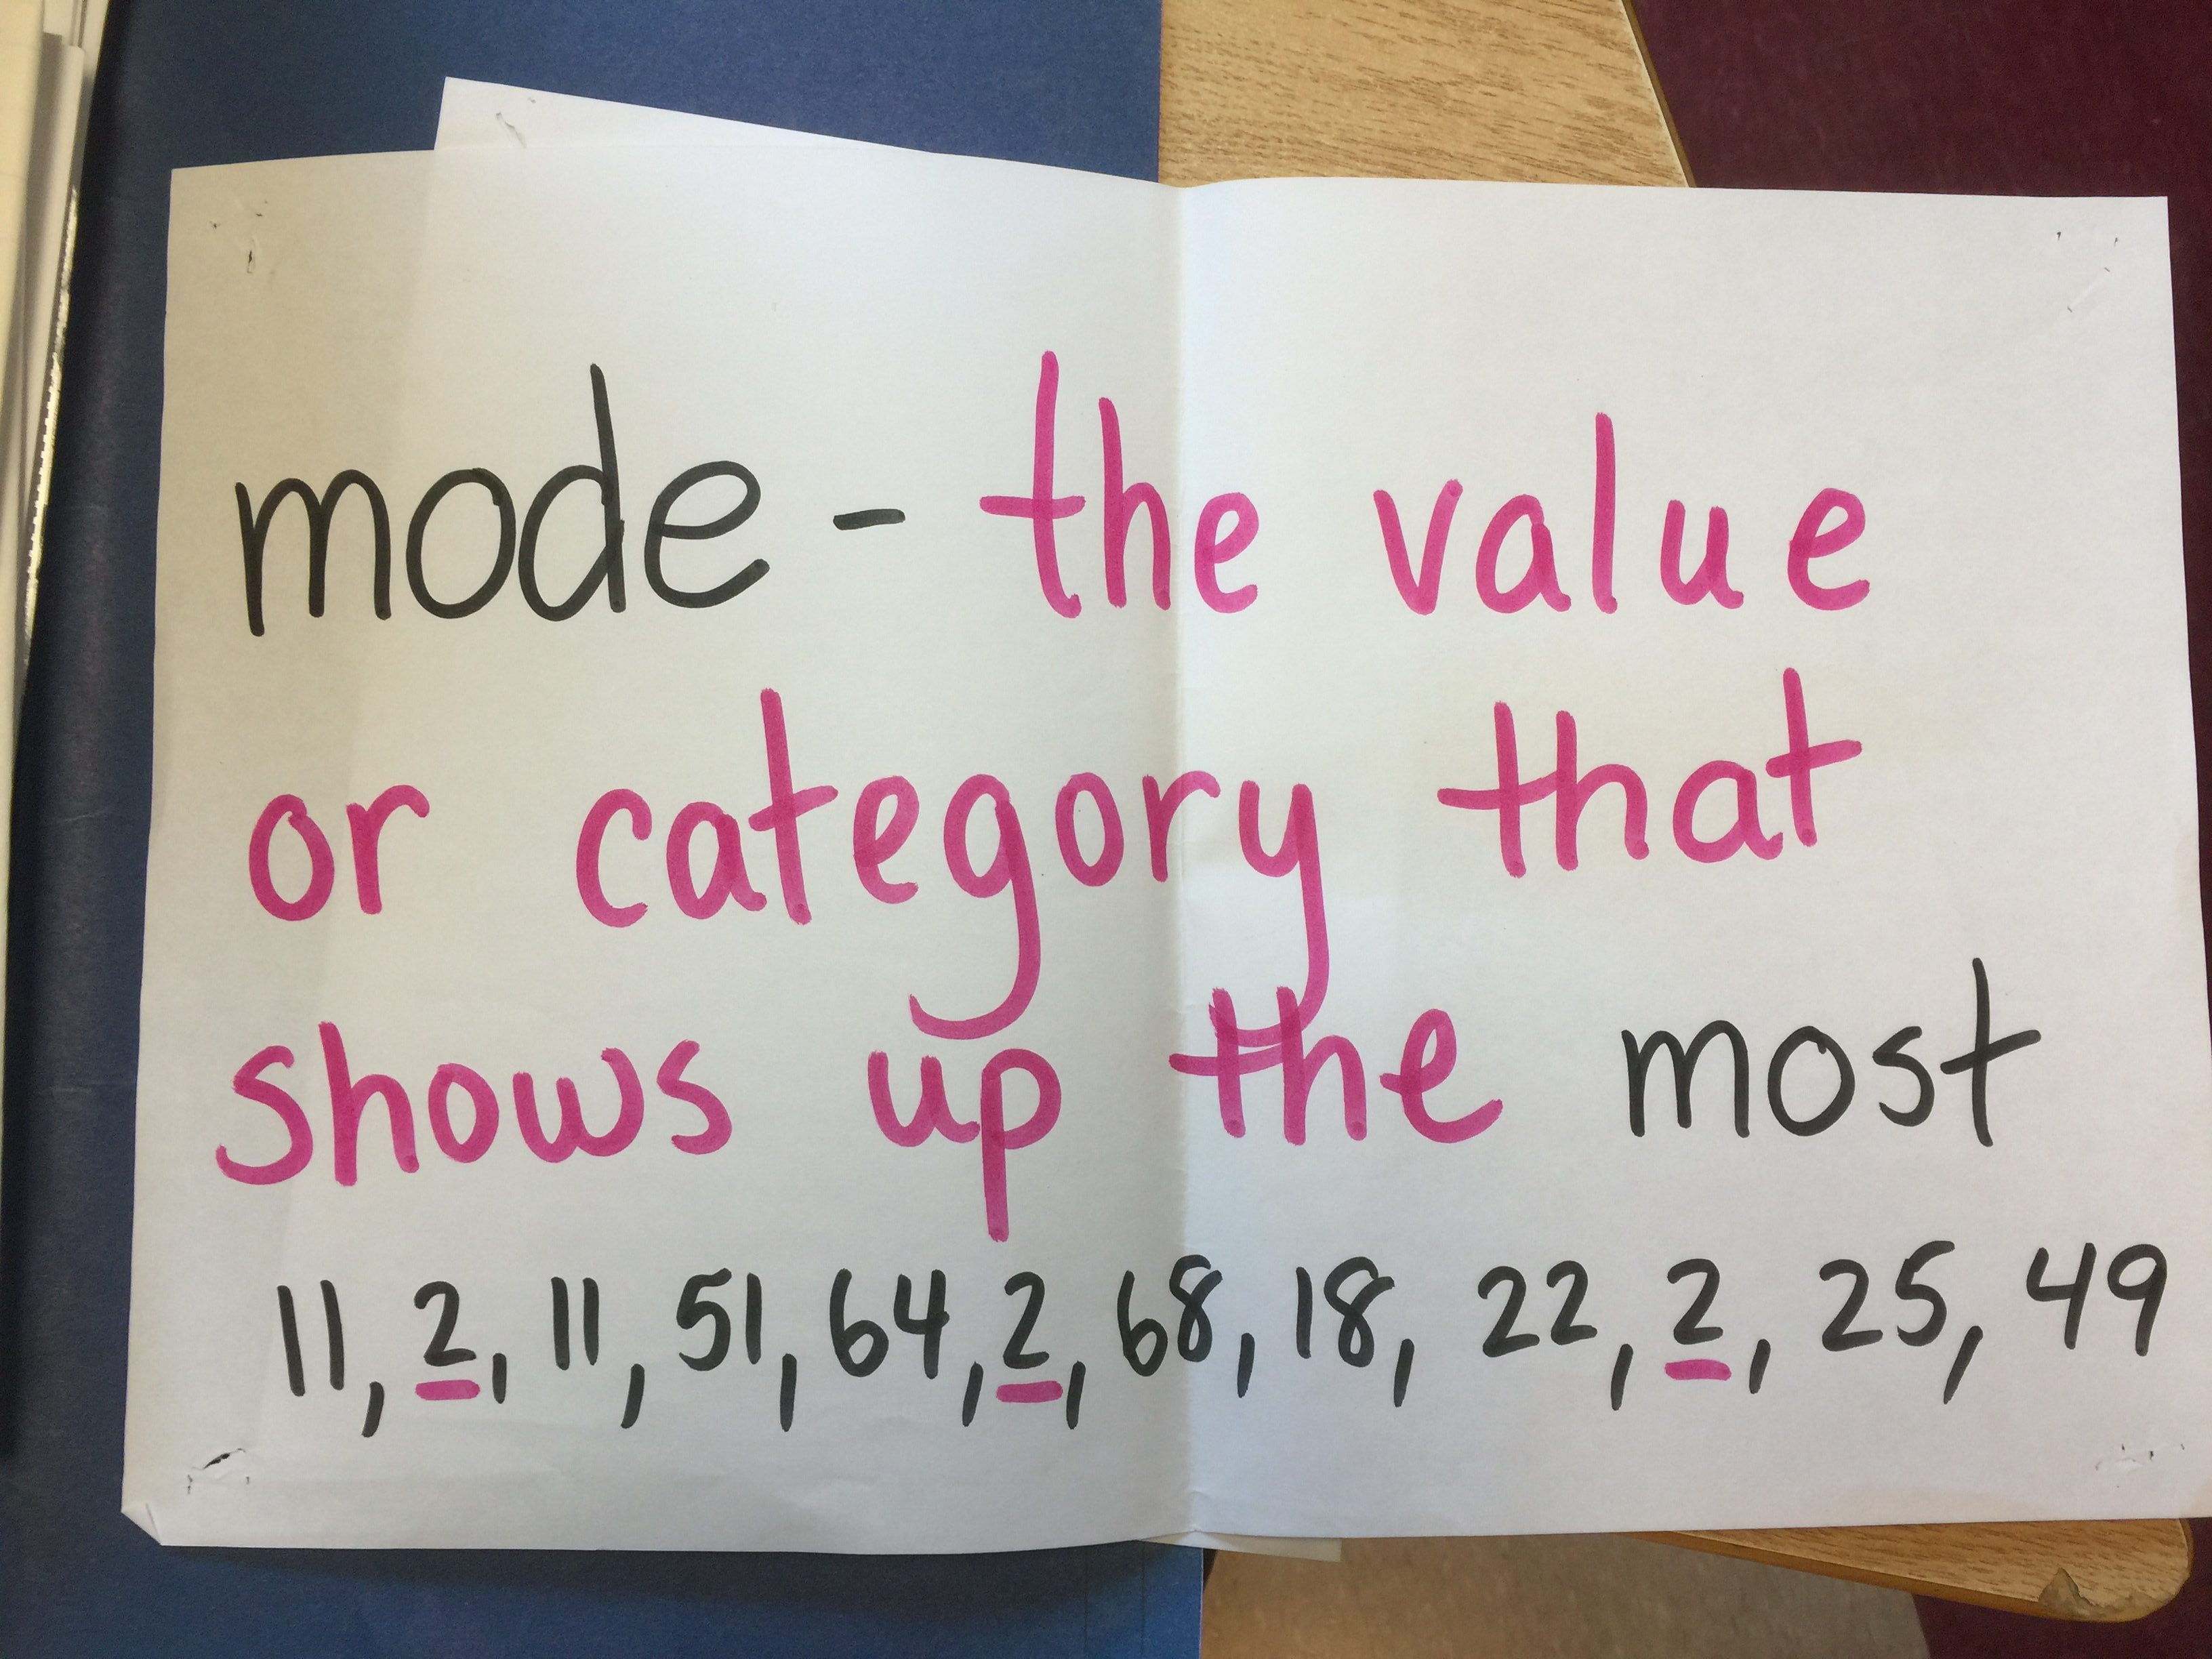 mode - the value
or category that
shows up the most
11, 2, 11, 51, 64, 2, 68, 18, 22, 2, 25, 49